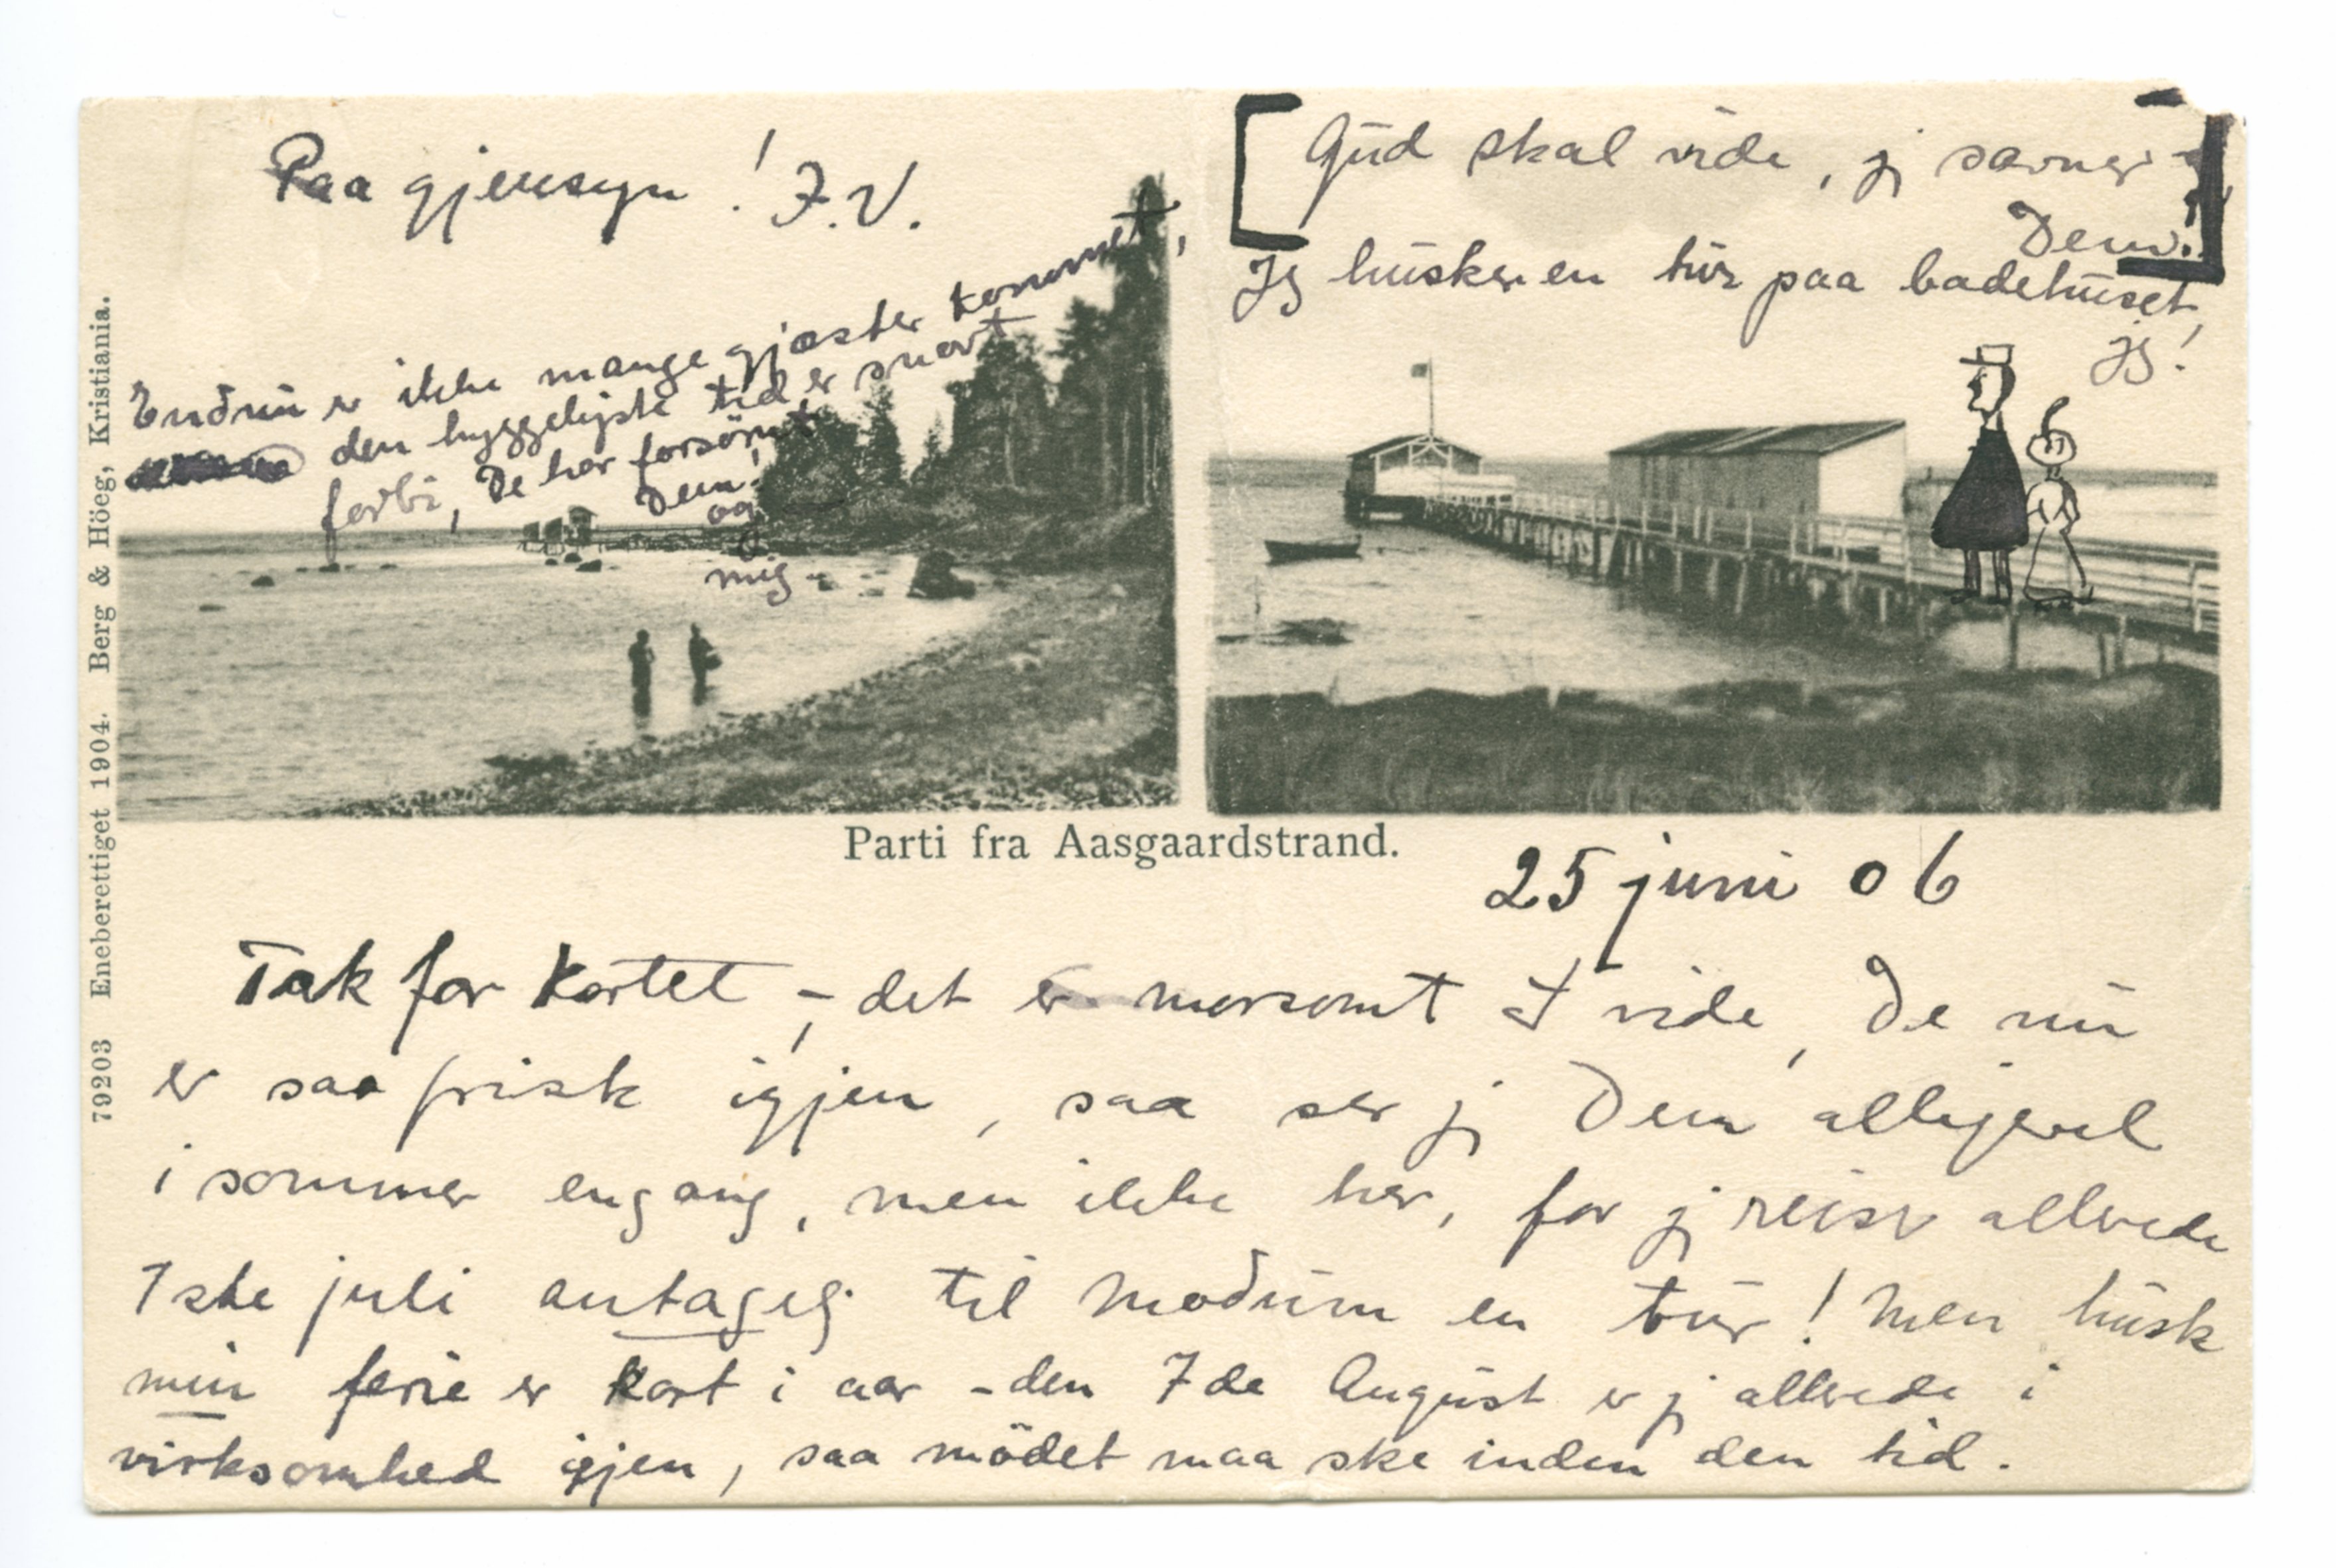 Paa gjensyn! F.V.
Endnu er ikke mange gjæster kommet,
den hyggeligste tid er snart
forbi, De har forsömt
Dem!
og
mig -
Gud skal vide, jg savner
Dem.
Jg husker en tur paa badehuset,
jg!
79203 Eneberettiget 1904. Berg & Höeg, Kristiania.
Parti fra Aasgaardstrand.
25 juni 06
Tak for Kortet, - det er morsomt at vide, De nu
er saa frisk igjen, saa ser jg Dem alligevel
i sommer engang, men ikke her, for jg reiser allerede
1ste juli antagelig til Modum en tur! Men husk
min ferie er kort i aar - den 7de August er jg allerede i
virksomhed igjen, saa mödet maa ske inden den tid.